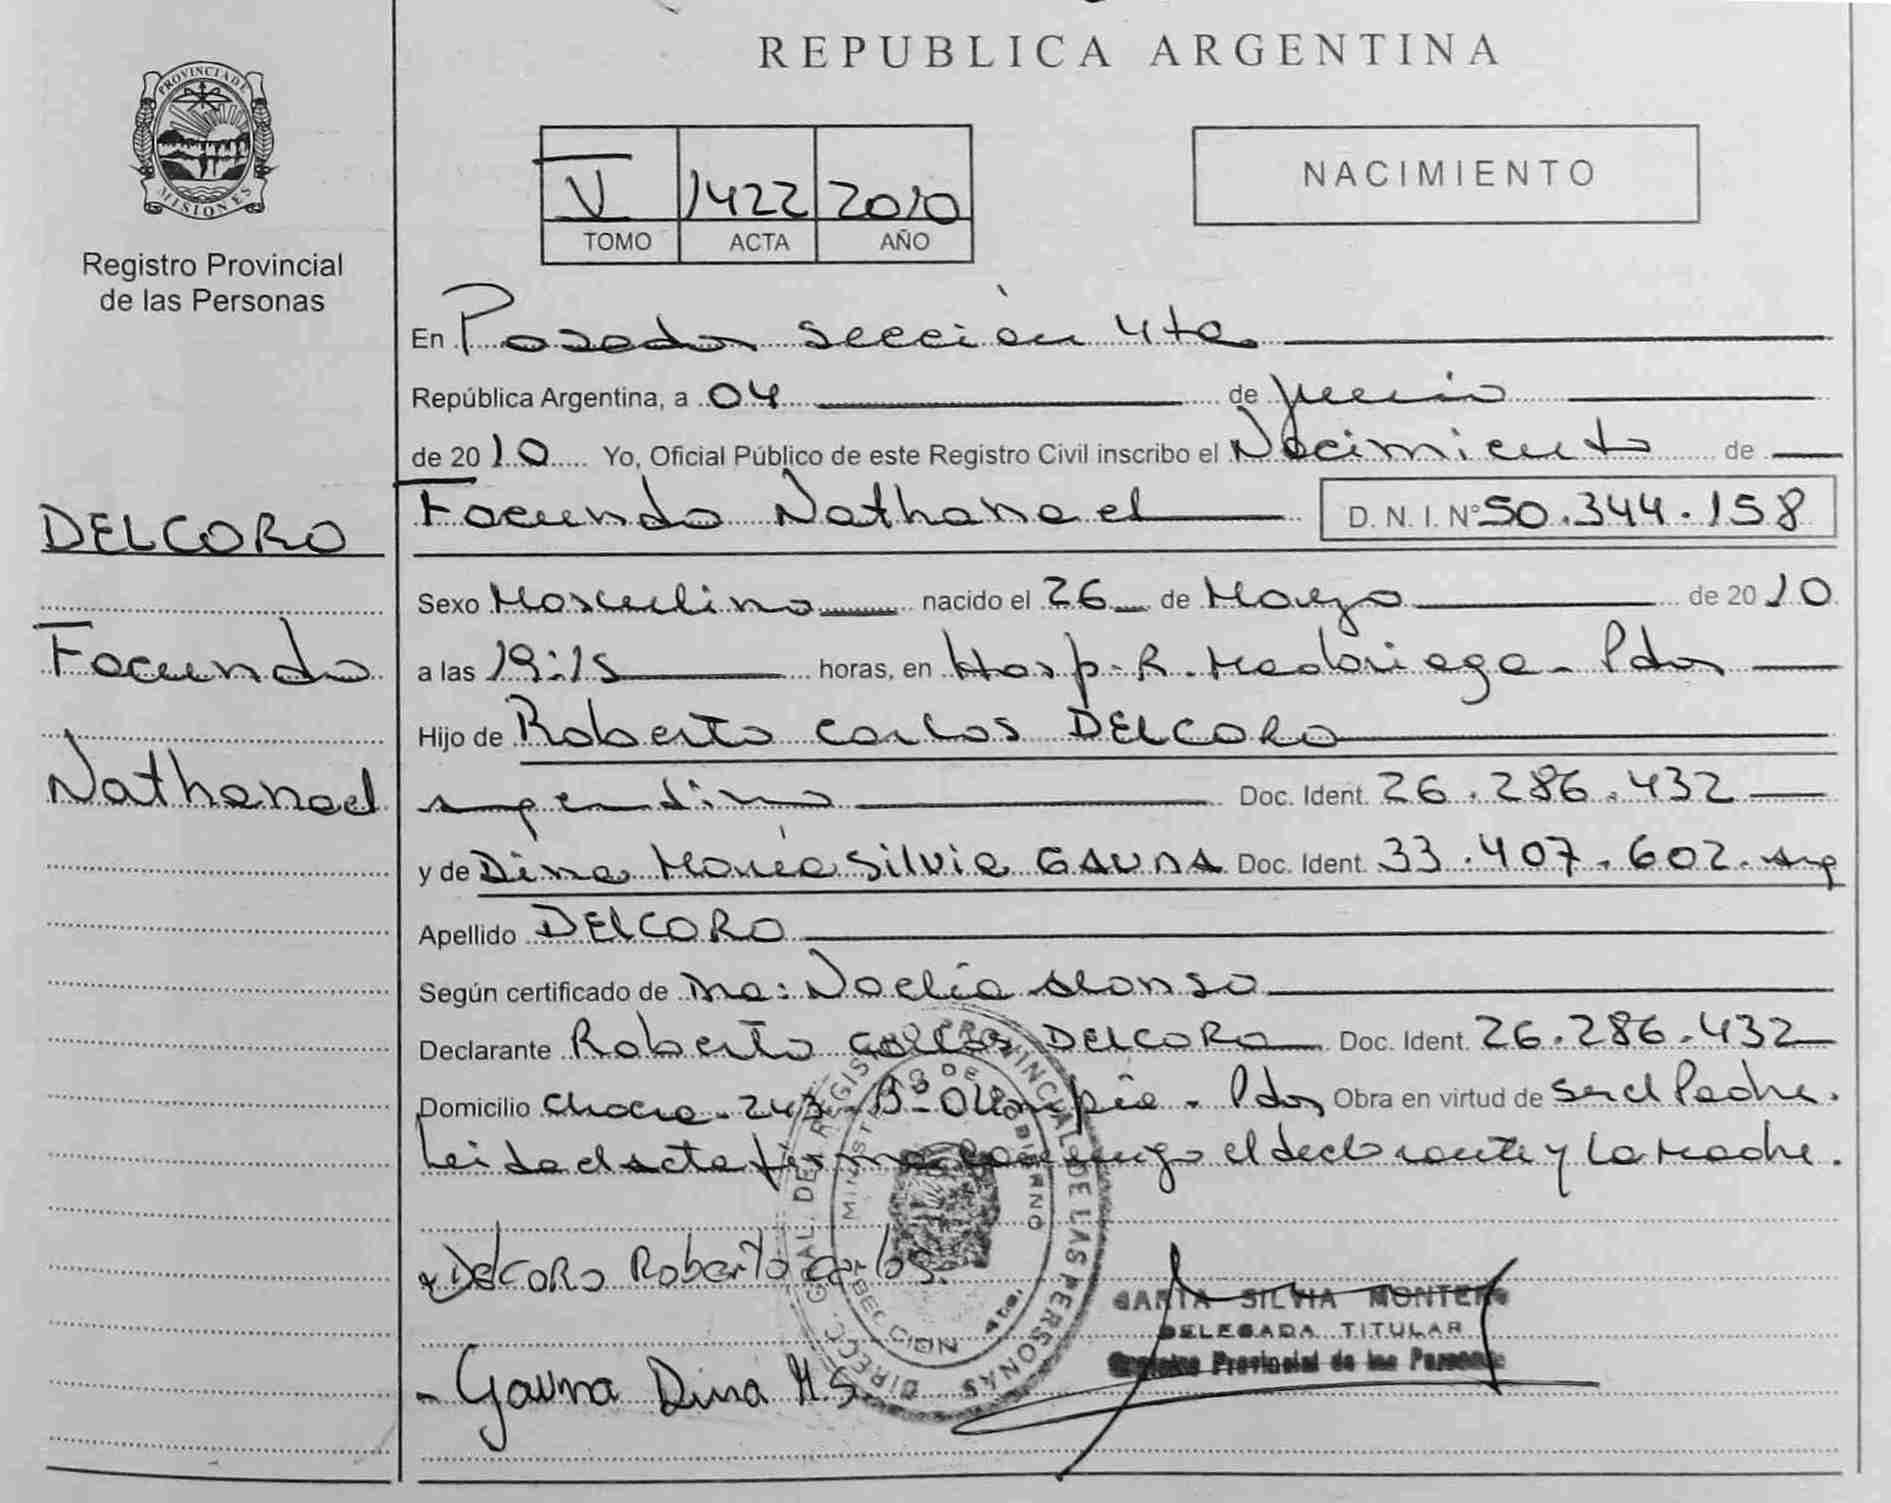 REPUBLICA ARGENTINA
PROVINCIA DE
MISIONES
Registro Provincial
de las Personas
V 1422 2010
TOMO ACTA AÑO
NACIMIENTO
En Posadas sección 4ta
República Argentina, a 04 de junio
de 2010 Yo, Oficial Público de este Registro Civil inscribo el Nacimiento de
Facundo Nathanael D. N. I. Nº 50.344.158
DELCORO
Facundo
Nathanael
Sexo Masculino nacido el 26 de Mayo de 2010
a las 19:15 horas, en Hosp. R. Madariaga - Pdas
Hijo de Roberto Carlos DELCORO
argentino Doc. Ident. 26.286.432
y de Dina María Silvia GAUNA Doc. Ident. 33.407.602. arg
Apellido DELCORO
Según certificado de Dra: Noelia Alonso
Declarante Roberto Carlos DELCORO Doc. Ident. 26.286.432
Domicilio Chacra - 243 - Bº Olimpia - Pdas Obra en virtud de ser el Padre.
Leida el acta firma conmigo el declarante y la Madre.
Delcoro Roberto Carlos.
- Gauna Dina M.S.
DIRECC. GRAL. DEL REGISTRO PROVINCIAL DE LAS PERSONAS
MINISTERIO DE GOBIERNO
SILVIA MONTERO
DELEGADA TITULAR
Registro Provincial de las Personas